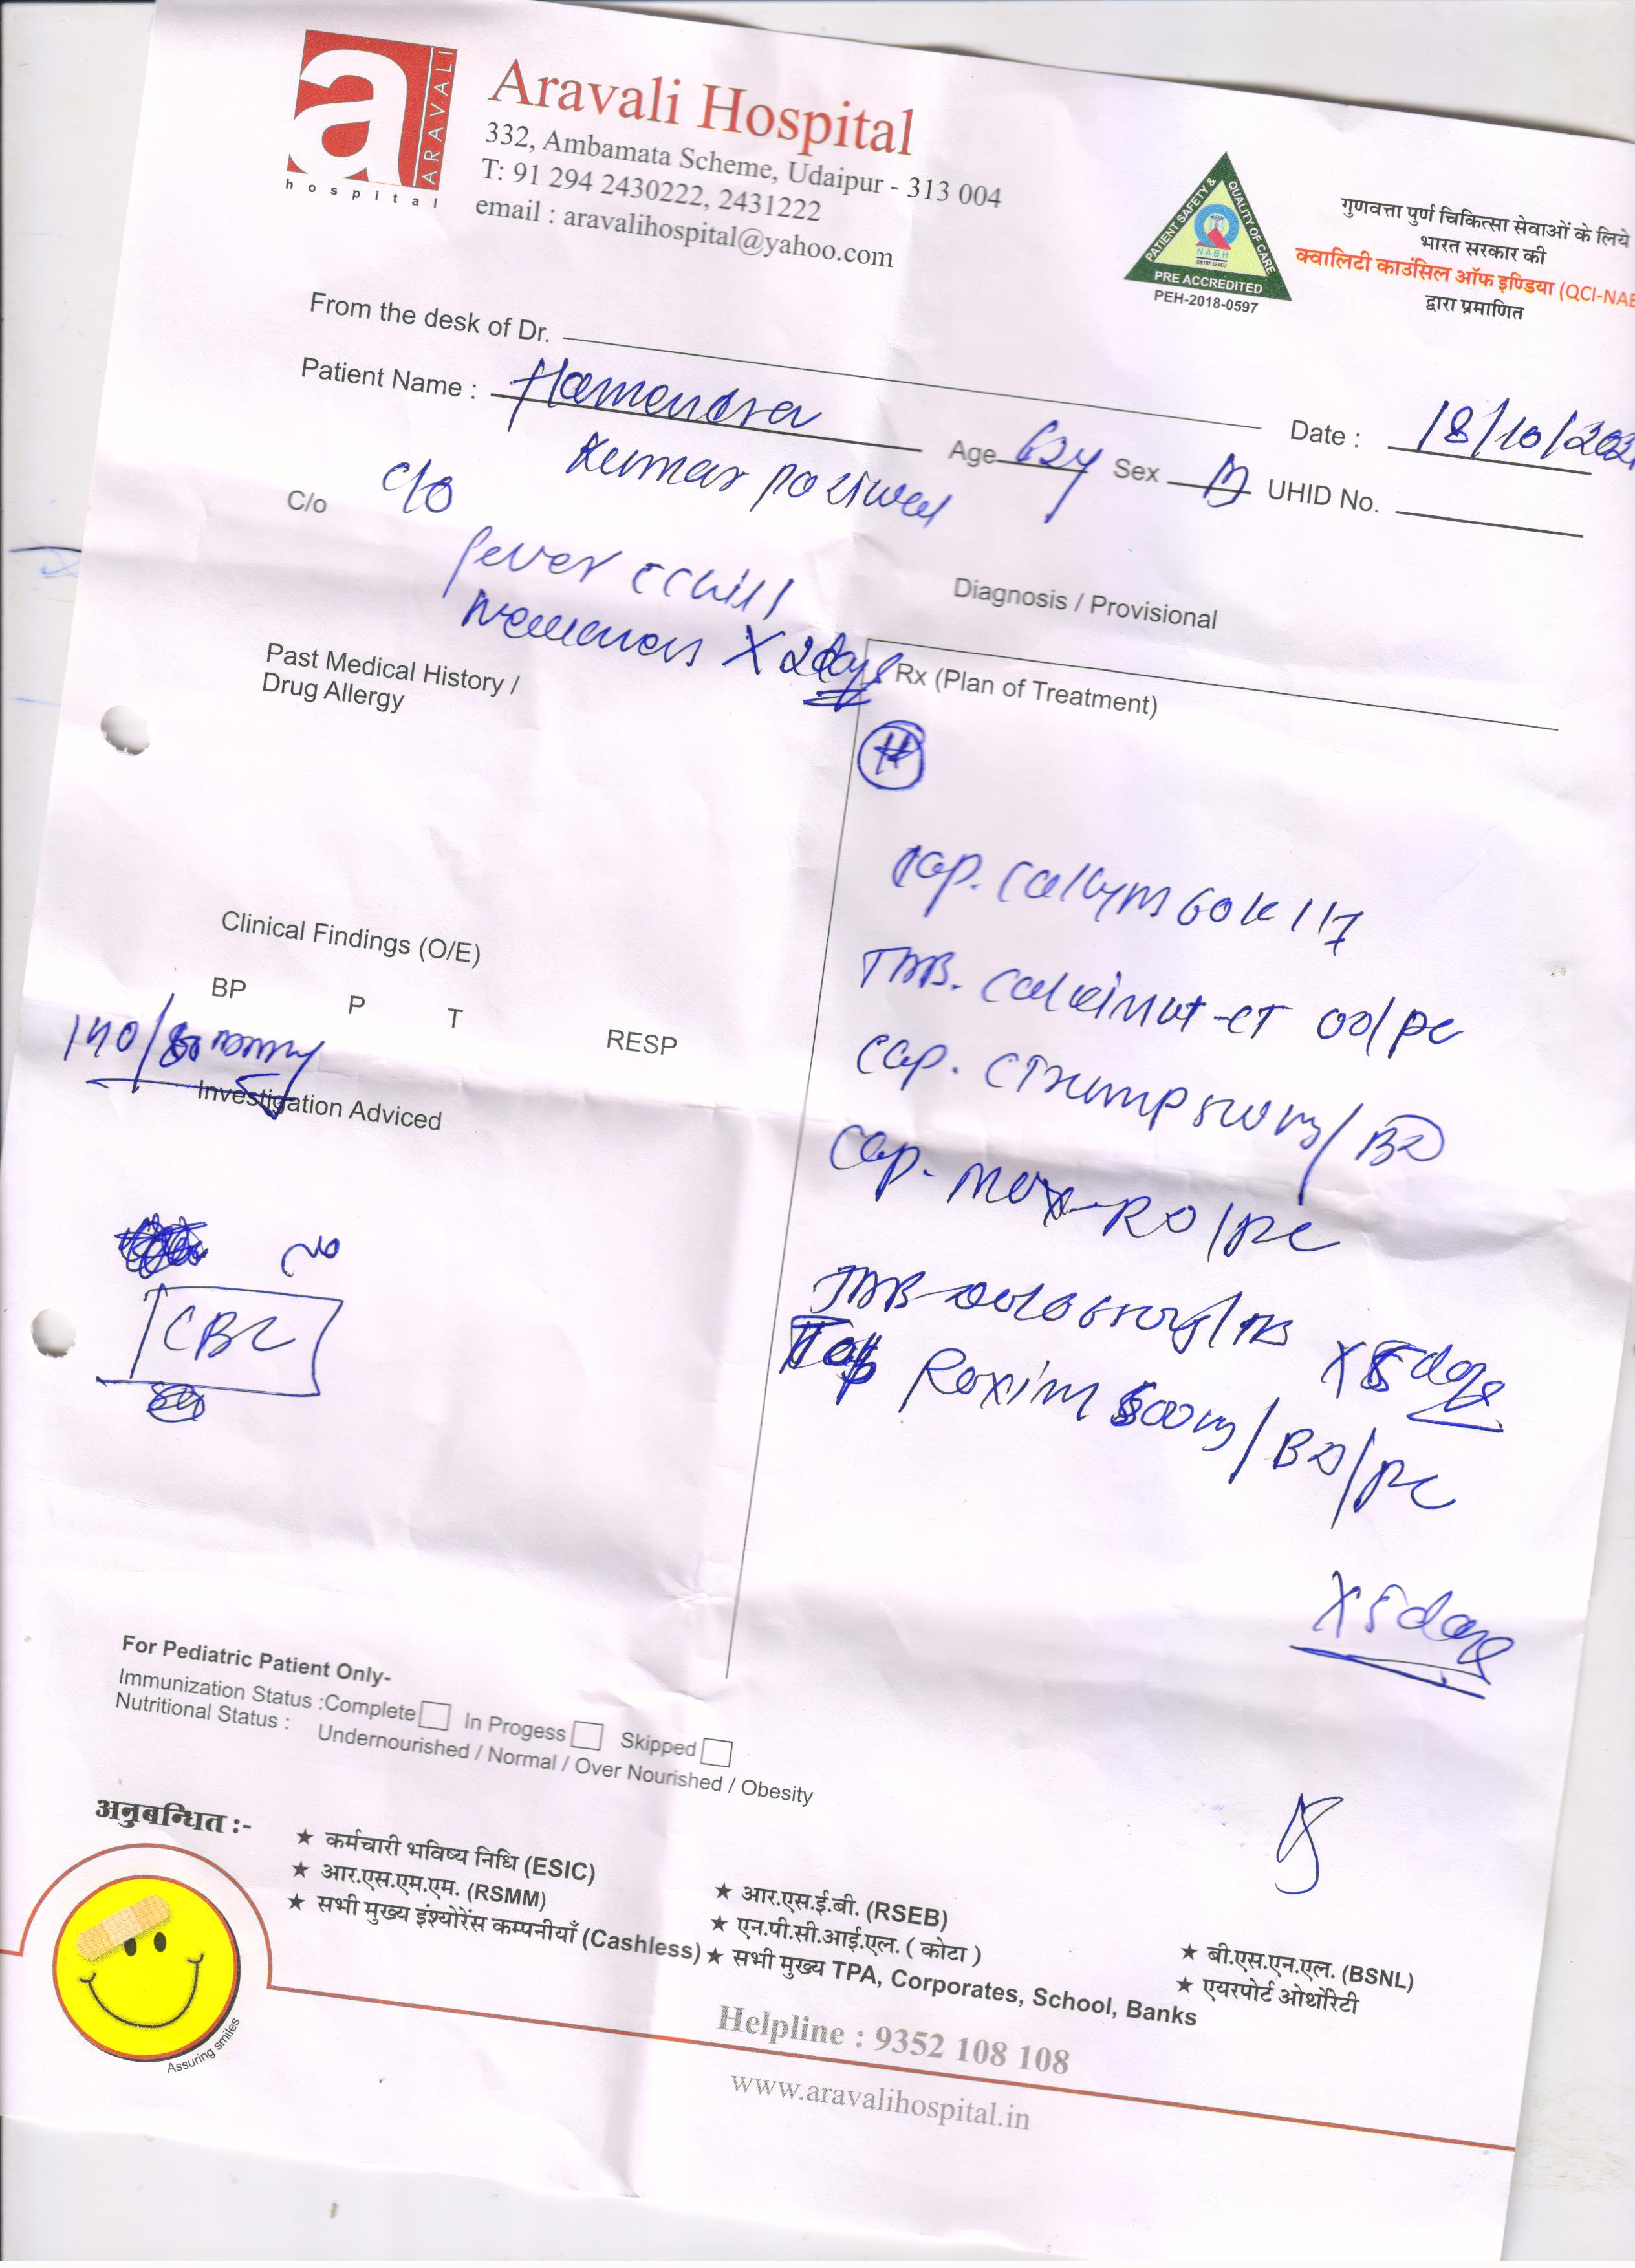 a ARAVALI
hospital
Aravali Hospital
332, Ambamata Scheme, Udaipur - 313 004
T: 91 294 2430222, 2431222
email : aravalihospital@yahoo.com
PATIENT SAFETY & QUALITY OF CARE
NABH
(ENTRY LEVEL)
PRE ACCREDITED
PEH-2018-0597
गुणवत्ता पुर्ण चिकित्सा सेवाओं के लिये
भारत सरकार की
क्वालिटी काउंसिल ऑफ इण्डिया (QCI-NAB
द्वारा प्रमाणित
From the desk of Dr.
Patient Name : Hamendra
Kumar
Age 62y Sex M UHID No.
Date : 18/10/202
C/o c/o
fever c chill
X 2 days
Diagnosis / Provisional
Past Medical History /
Drug Allergy
Rx (Plan of Treatment)
H
Cap. 60k 1/7
TAB. OD/PC
Cap. /BD
Cap. /PC
TAB X 5 days
Tab Roxim 500mg/BD/PC
X 5 days
Clinical Findings (O/E)
BP P T RESP
140/80 mmHg
Investigation Adviced
CBC
For Pediatric Patient Only-
Immunization Status :Complete In Progess Skipped
Nutritional Status : Undernourished / Normal / Over Nourished / Obesity
अनुबन्धित :-
★ कर्मचारी भविष्य निधि (ESIC)
★ आर.एस.एम.एम. (RSMM)
★ सभी मुख्य इंश्योरेंस कम्पनीयाँ (Cashless)
★ आर.एस.ई.बी. (RSEB)
★ एन.पी.सी.आई.एल. ( कोटा )
★ सभी मुख्य TPA, Corporates, School, Banks
★ बी.एस.एन.एल. (BSNL)
★ एयरपोर्ट ओथोरिटी
Assuring smiles
Helpline : 9352 108 108
www.aravalihospital.in